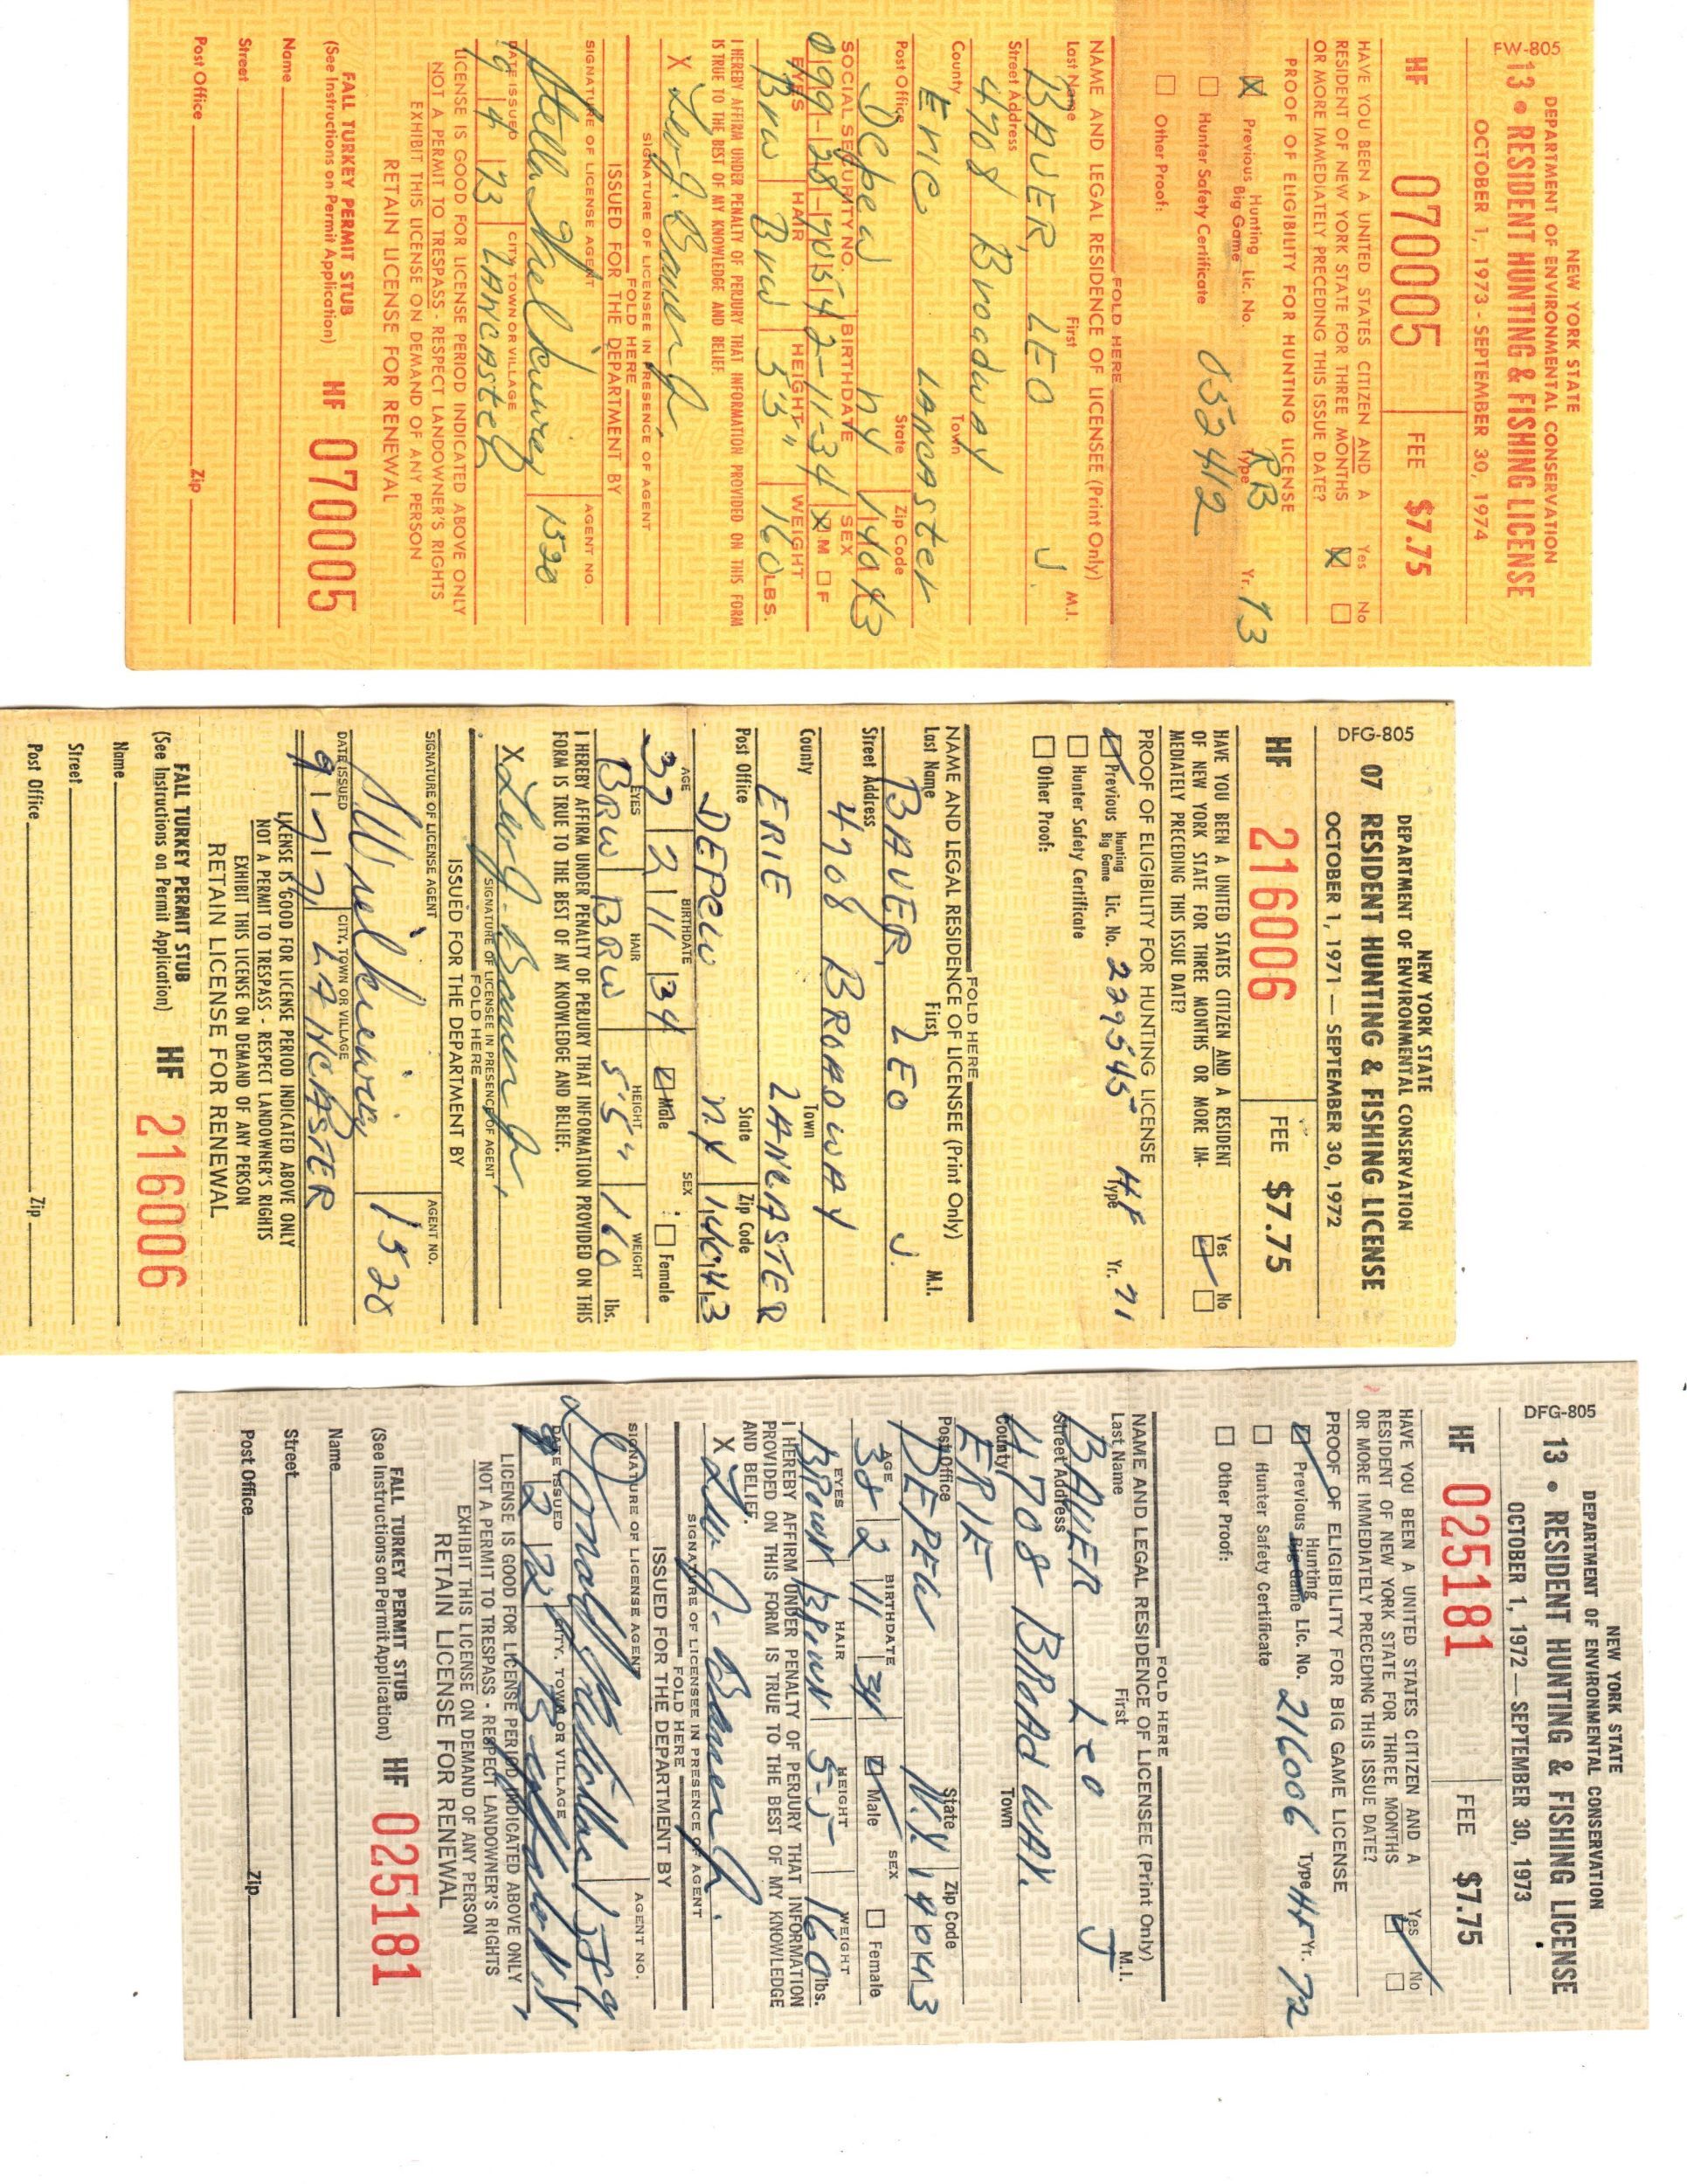 NEW YORK STATE
DEPARTMENT OF ENVIRONMENTAL CONSERVATION
FW-805
13 • RESIDENT HUNTING & FISHING LICENSE
OCTOBER 1, 1973 - SEPTEMBER 30, 1974
HF 070005 FEE $7.75
HAVE YOU BEEN A UNITED STATES CITIZEN AND A Yes No
RESIDENT OF NEW YORK STATE FOR THREE MONTHS
OR MORE IMMEDIATELY PRECEDING THIS ISSUE DATE?
PROOF OF ELIGIBILITY FOR HUNTING LICENSE
Previous Hunting Big Game Lic. No. 052412 Type RB Yr. 73
Hunter Safety Certificate
Other Proof:
FOLD HERE
NAME AND LEGAL RESIDENCE OF LICENSEE (Print Only)
Last Name First M.I.
BAUER, LEO J.
Street Address
4708 Broadway
County Town
Erie LANCASTER
Post Office State Zip Code
Depew NY 14043
SOCIAL SECURITY NO. BIRTHDATE SEX
2-11-34 M F
EYES HAIR HEIGHT WEIGHT
Brw Brw 5'5" 160 LBS.
I HEREBY AFFIRM UNDER PENALTY OF PERJURY THAT INFORMATION PROVIDED ON THIS FORM
IS TRUE TO THE BEST OF MY KNOWLEDGE AND BELIEF.
X Leo J. Bauer Jr.
SIGNATURE OF LICENSEE IN PRESENCE OF AGENT
FOLD HERE
ISSUED FOR THE DEPARTMENT BY
SIGNATURE OF LICENSE AGENT AGENT NO.
Stella 1520
DATE ISSUED CITY, TOWN OR VILLAGE
4 73 LANCASTER
LICENSE IS GOOD FOR LICENSE PERIOD INDICATED ABOVE ONLY
NOT A PERMIT TO TRESPASS - RESPECT LANDOWNER'S RIGHTS
EXHIBIT THIS LICENSE ON DEMAND OF ANY PERSON
RETAIN LICENSE FOR RENEWAL
FALL TURKEY PERMIT STUB
(See Instructions on Permit Application) HF 070005
Name
Street
Post Office Zip
NEW YORK STATE
DEPARTMENT OF ENVIRONMENTAL CONSERVATION
DFG-805
07 RESIDENT HUNTING & FISHING LICENSE
OCTOBER 1, 1971 — SEPTEMBER 30, 1972
HF 216006 FEE $7.75
HAVE YOU BEEN A UNITED STATES CITIZEN AND A RESIDENT Yes No
OF NEW YORK STATE FOR THREE MONTHS OR MORE IM-
MEDIATELY PRECEDING THIS ISSUE DATE?
PROOF OF ELIGIBILITY FOR HUNTING LICENSE
Previous Hunting Big Game Lic. No. 229545 Type HF Yr. 71
Hunter Safety Certificate
Other Proof:
FOLD HERE
NAME AND LEGAL RESIDENCE OF LICENSEE (Print Only)
Last Name First M.I.
BAUER, LEO J.
Street Address
4708 BROADWAY
County Town
ERIE LANCASTER
Post Office State Zip Code
DEPEW N.Y. 14043
AGE BIRTHDATE SEX
37 2 11 34 Male Female
EYES HAIR HEIGHT WEIGHT
BRW BRW 5'5" 160 lbs.
I HEREBY AFFIRM UNDER PENALTY OF PERJURY THAT INFORMATION PROVIDED ON THIS
FORM IS TRUE TO THE BEST OF MY KNOWLEDGE AND BELIEF.
X Leo J. Bauer Jr.
SIGNATURE OF LICENSEE IN PRESENCE OF AGENT
FOLD HERE
ISSUED FOR THE DEPARTMENT BY
SIGNATURE OF LICENSE AGENT AGENT NO.
1520
DATE ISSUED CITY, TOWN OR VILLAGE
LANCASTER
LICENSE IS GOOD FOR LICENSE PERIOD INDICATED ABOVE ONLY
NOT A PERMIT TO TRESPASS - RESPECT LANDOWNER'S RIGHTS
EXHIBIT THIS LICENSE ON DEMAND OF ANY PERSON
RETAIN LICENSE FOR RENEWAL
FALL TURKEY PERMIT STUB
(See Instructions on Permit Application) HF 216006
Name
Street
Post Office Zip
NEW YORK STATE
DEPARTMENT OF ENVIRONMENTAL CONSERVATION
DFG-805
13 • RESIDENT HUNTING & FISHING LICENSE
OCTOBER 1, 1972 — SEPTEMBER 30, 1973
HF 025181 FEE $7.75
HAVE YOU BEEN A UNITED STATES CITIZEN AND A Yes No
RESIDENT OF NEW YORK STATE FOR THREE MONTHS
OR MORE IMMEDIATELY PRECEDING THIS ISSUE DATE?
PROOF OF ELIGIBILITY FOR BIG GAME LICENSE
Previous Hunting Big Game Lic. No. 216006 Type HF Yr. 72
Hunter Safety Certificate
Other Proof:
FOLD HERE
NAME AND LEGAL RESIDENCE OF LICENSEE (Print Only)
Last Name First M.I.
BAUER Leo J
Street Address
4708 BROAD WAY.
County Town
ERIE
Post Office State Zip Code
DEPEW N.Y. 14043
AGE BIRTHDATE SEX
38 2 11 34 Male Female
EYES HAIR HEIGHT WEIGHT
BROWN BROWN 5-5 160 lbs.
I HEREBY AFFIRM UNDER PENALTY OF PERJURY THAT INFORMATION
PROVIDED ON THIS FORM IS TRUE TO THE BEST OF MY KNOWLEDGE
AND BELIEF.
X Leo J. Bauer Jr.
SIGNATURE OF LICENSEE IN PRESENCE OF AGENT
FOLD HERE
ISSUED FOR THE DEPARTMENT BY
SIGNATURE OF LICENSE AGENT AGENT NO.
Donald 1589
DATE ISSUED CITY, TOWN OR VILLAGE
2 72 Buffalo N.Y.
LICENSE IS GOOD FOR LICENSE PERIOD INDICATED ABOVE ONLY
NOT A PERMIT TO TRESPASS - RESPECT LANDOWNER'S RIGHTS
EXHIBIT THIS LICENSE ON DEMAND OF ANY PERSON
RETAIN LICENSE FOR RENEWAL
FALL TURKEY PERMIT STUB
(See Instructions on Permit Application) HF 025181
Name
Street
Post Office Zip